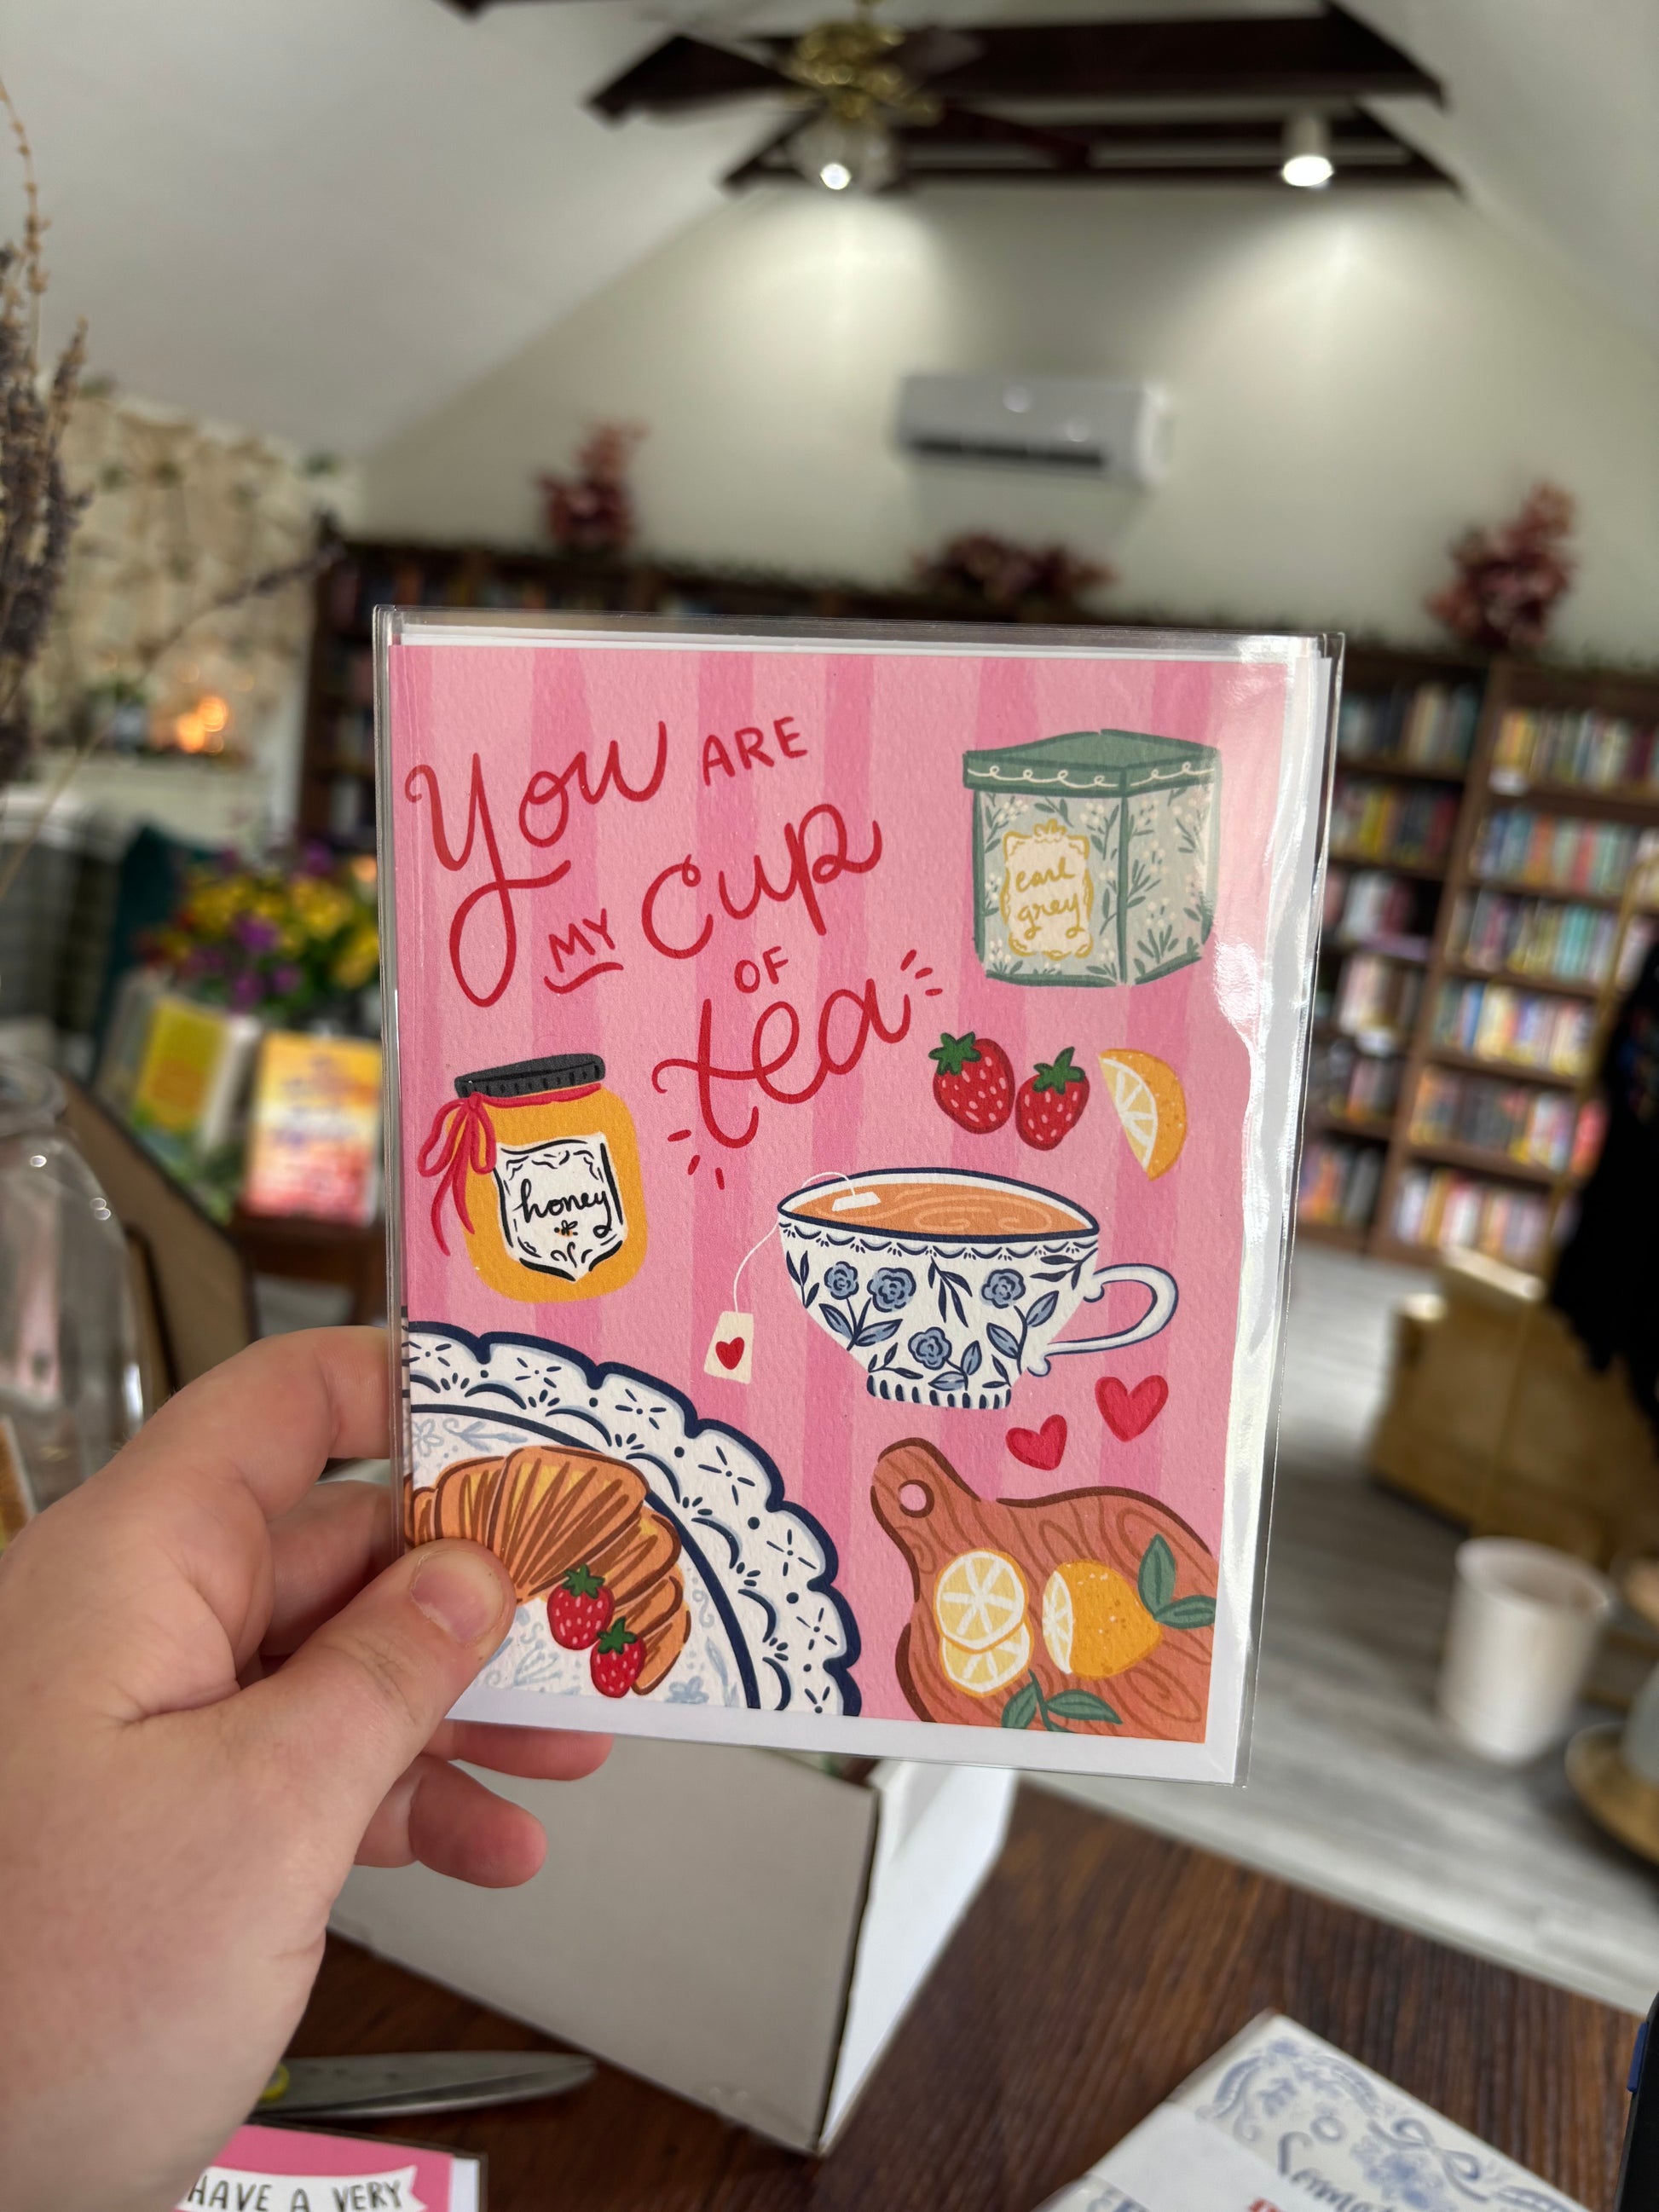 You ARE
MY Cup
OF
tea
earl
grey
honey
HAVE A VERY